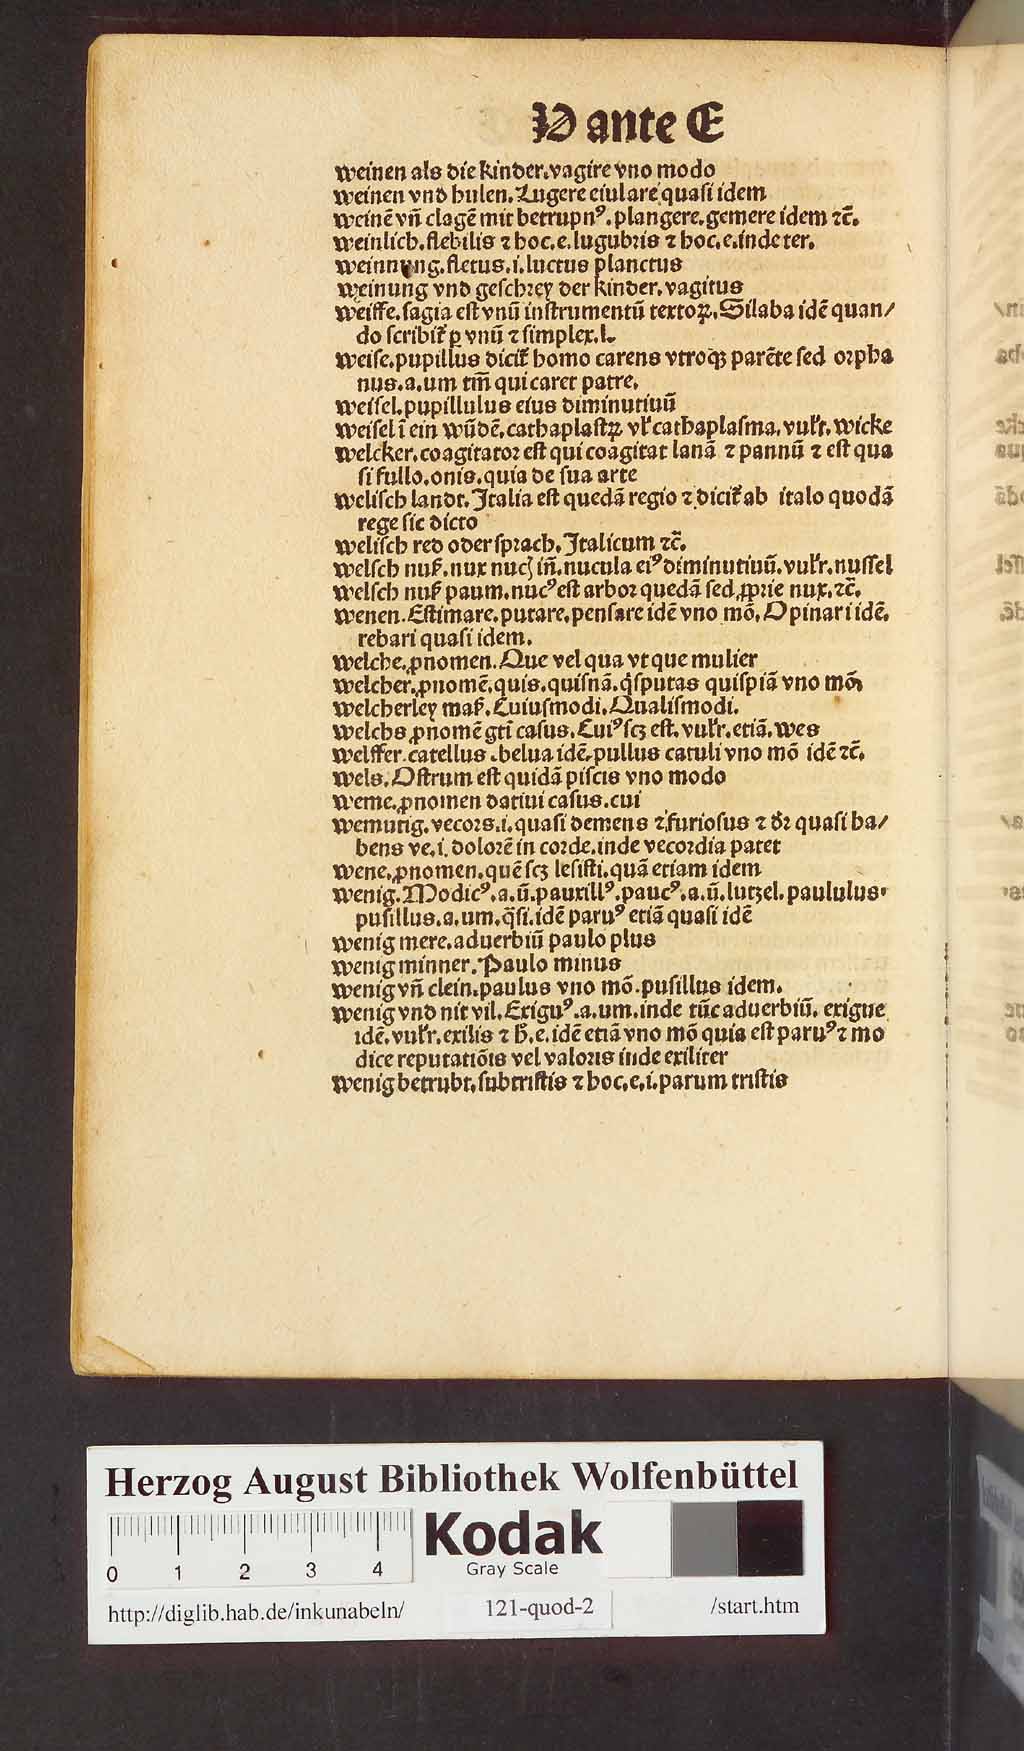 W ante E
weinen als die kinder. vagire vno modo
weinen vnd hulen. Lugere eiulare quasi idem
weinē vñ clagē mit betrupnꝰ. plangere. gemere idem ⁊c̄.
weinlich. flebilis ⁊ hoc. e. lugubris ⁊ hoc. e. inde ter.
weinnung. fletus. i. luctus planctus
weinung vnd geschrey der kinder. vagitus
weiffe. sagia est vnū instrumentū textoꝝ. Silaba idē quan/
do scribit᷑ ꝑ vnū ⁊ simplex. l.
weise. pupillus dicit᷑ homo carens vtroqꝫ parēte sed orpha
nus. a. um tm̄ qui caret patre.
weisel. pupillulus eius diminutiuū
weisel ī ein wūdē. cathaplastꝝ vł cathaplasma. vulr̄. wicke
welcker. coagitator est qui coagitat lanā ⁊ pannū ⁊ est qua
si fullo. onis. quia de sua arte
welisch landt. Italia est quedā regio ⁊ dicit᷑ ab italo quodā
rege sic dicto
welisch red oder sprach. Italicum ⁊c̄.
welsch nuß. nux nucꝭ iñ. nucula eiꝰ diminutiuū. vulr̄. nussel
welsch nuß paum. nucꝰ est arbor quedā sed ꝓprie nux. ⁊c̄.
wenen. Estimare. putare. pensare idē vno mō. Opinari idē.
rebari quasi idem.
welche. ꝓnomen. Que vel qua vt que mulier
welcher. ꝓnomē. quis. quisnā. q̇sputas quispiā vno mō
welcherley maß. Cuiusmodi. Qualismodi.
welchs ꝓnomē gtī casus. Cuiꝰ scꝫ est. vulr̄. etiā. wes
welffer. catellus. belua idē. pullus catuli vno mō idē ⁊c̄.
wels. Ostrum est quidā piscis vno modo
weme. ꝓnomen datiui casus. cui
wemutig. vecors. i. quasi demens ⁊ furiosus ⁊ dr̄ quasi ha/
bens ve. i. dolorē in corde. inde vecordia patet
wene. ꝓnomen. quē scꝫ lesisti. quā etiam idem
wenig. Modicꝰ. a. ū. pauxillꝰ. paucꝰ. a. ū. lutzel. paululus.
pusillus. a. um. q̄si. idē paruꝰ etiā quasi idē
wenig mere. aduerbiū paulo plus
wenig minner. Paulo minus
wenig vñ clein. paulus vno mō. pusillus idem.
wenig vnd nit vil. Exiguꝰ. a. um. inde tūc aduerbiū. exigue
idē. vulr̄. exilis ⁊ ħ. e. idē etiā vno mō quia est paruꝰ ⁊ mo
dice reputatiōis vel valoris inde exiliter
wenig betrubt. subtristis ⁊ hoc. e. i. parum tristis
Herzog August Bibliothek Wolfenbüttel
0 1 2 3 4
Kodak
Gray Scale
http://diglib.hab.de/inkunabeln/ 121-quod-2 /start.htm